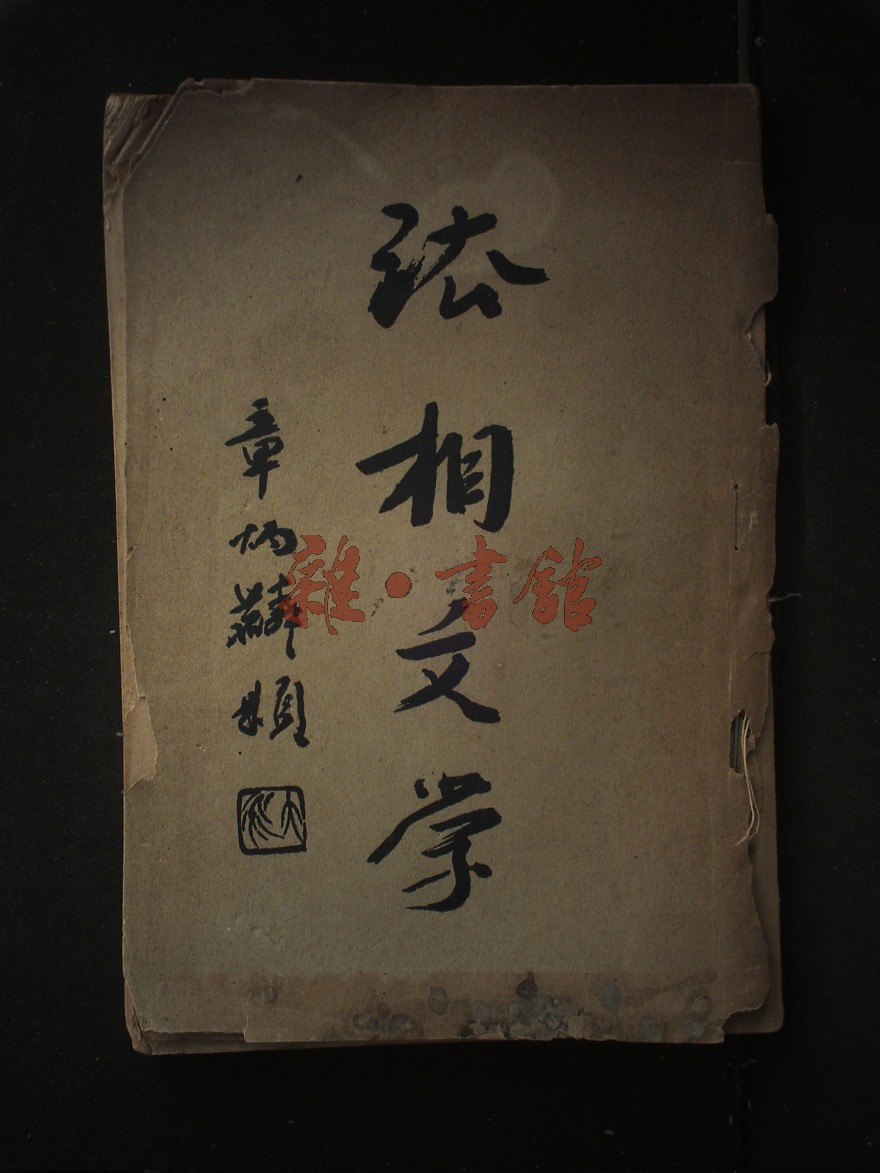 法相文学
章炳麟题
雜·書館